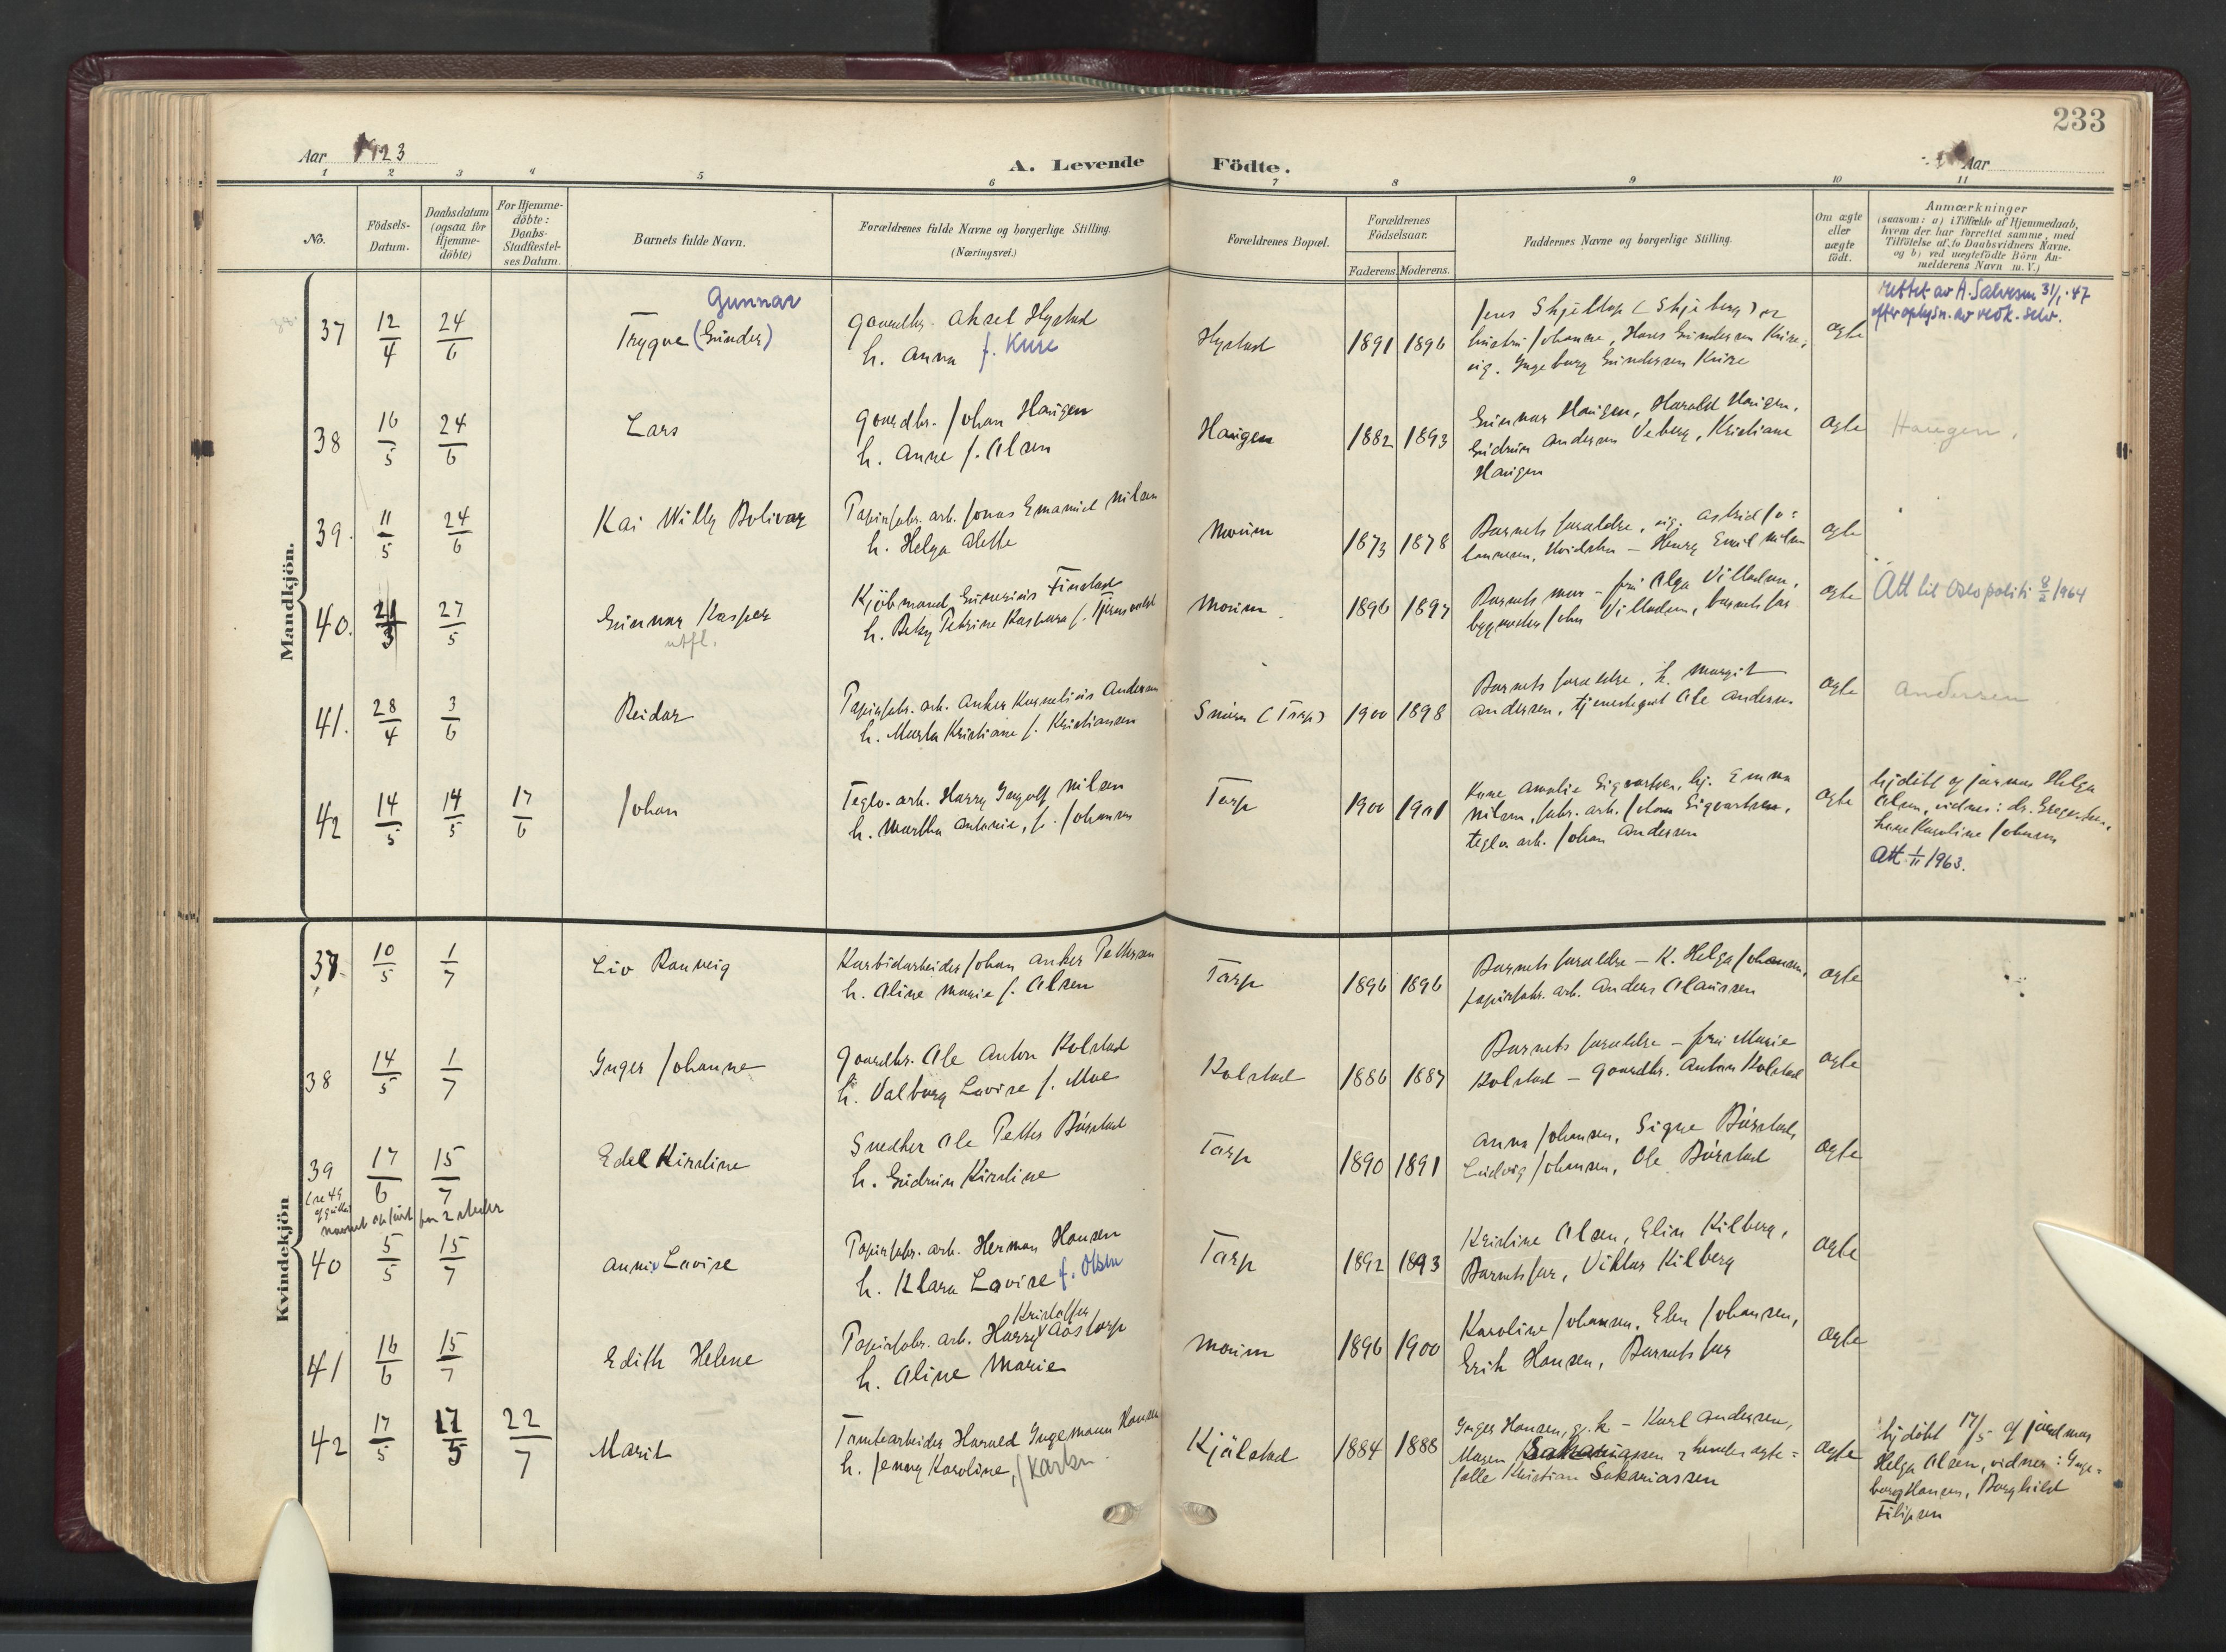 233
Aar 1923
A. Levende Födte.
Aar
1 2 3 4 5 6 7 8 9 10 11
No.
Födsels-
Datum.
Daabsdatum
(ogsaa for
Hjemme-
döbte)
For Hjemme-
döbte:
Daabs-
Stadfæstel-
ses Datum.
Barnets fulde Navn.
Forældrenes fulde Navne og borgerlige Stilling.
(Næringsvei.)
Forældrenes Bopæl.
Forældrenes
Födselsaar.
Faderens. Moderens.
Faddernes Navne og borgerlige Stilling.
Om ægte
eller
uægte
födt.
Anmærkninger
(saasom: a) i Tilfælde af Hjemmedaab,
hvem der har forrettet samme, med
Tilföielse af to Daabsvidners Navne.
og b) ved uægtefödte Börn An-
melderens Navn m. V.)
Mandkjön.
37 12/4 24/6
Gunnar
Trygve (Gunder)
Gaardbr. Aksel Hystad
h. Anna f. Kure
Hystad
1891 1896
Jens Skjeltop (Skjeberg) og
hustru Johanne, Hans Gundersen Kure,
pig. Ingeborg Gundersen Kure
ægte
rettet av A. Salvesen 31/1 - 47
efter oplysn. av vedk. selv.
38 16/5 24/6
Lars
Gaardbr. Johan Haugen
h. Anne f. Olsen
Haugen
1882 1893
Gunnar Haugen, Harald Haugen,
Gudrun Andersen Veberg, Kristiane
Haugen
ægte
Haugen.
39. 11/5 24/6
Kai Willy Bolivar
Papirfabr. arb. Jonas Emanuel Nilsen
h. Helga Alette
Moum
1873 1878
Barnets forældre, pig. Astrid Jo-
hannesen, Hvidsten - Henry Emil Nilsen
ægte
40. 21/3 27/5
Gunnar Kasper
utfl.
Kjöbmand Gunerius Finstad
h. Betzy Petrine Kaspara f.
Moum
1896 1897
Barnets mor - fru Olga Villadsen,
byggmester John Villadsen, barnets far
ægte
Att til Oslo politi 8/2 1964
41. 28/4 3/6
Reidar
Papirfabr. arb. Anker Kornelius Andersen
h. Marta Kristiane f. Kristiansen
Smaen (Torp)
1900 1898
Barnets forældre, h. Margit
Andersen, tjenestegut Ole Andersen
ægte
Andersen
42 14/5 14/5 17/6
Johan
Teglv. arb. Harry Ingolf Nilsen
h. Martha Antonie, f. Johansen
Torp
1900 1901
Kone Amalie Sigvartsen, pj. Emma
Nilsen, fabr. arb. Johan Sigvartsen,
teglv. arb. Johan Andersen
ægte
hjdöbt af jormor Helga
Olsen, vidner: dr. Gregersen,
kone Karoline Johnsen
Att 1/11 1963.
Kvindekjön
37. 10/5 1/7
Liv Ranveig
Karbidarbeider Johan Anker Pettersen
h. Aline Marie f. Olsen
Torp
1896 1896
Barnets forældre - K. Helga Johansen,
papirfabr. arb. Anders Olaussen
ægte
38 14/5 1/7
Inger Johanne
Gaardbr. Ole Anton Kolstad
h. Valborg Lovise f. Moe
Kolstad
1886 1887
Barnets forældre - fru Marie
Kolstad - Gaardbr. Anton Kolstad
ægte
39 17/6 15/7
(se 49
navnet opfört paa 2 steder
Edel Kirstine
Snedker Ole Petter Börstad
h. Gudrun Kirstine
Torp
1890 1891
Anna Johansen, Signe Börstad,
Ludvig Johansen, Ole Börstad
ægte
40 5/5 15/7
Annie Lovise
Papirfabr. arb. Herman Hansen
h. Klara Lovise f. Olsen
Torp
1892 1893
Kristine Olsen, Elin Kilberg,
Barnets far, Viktor Kilberg
ægte
41 16/6 15/7
Edith Helene
Kristoffer
Papirfabr. arb. Harry Aastorp
h. Aline Marie
Moum
1896 1900
Karoline Johansen, Elen Johansen,
Erik Hansen, Barnets far
ægte
42 17/5 17/5 22/7
Marit
Tomtearbeider Harald Ingemann Hansen
h. Jenny Karoline, f Karlsn.
Kjälstad
1884 1888
Inger Hansen, gj. k - Karl Andersen,
Maren Sakariassen, hendes ægte-
fælle Kristian Sakariassen
ægte
hjdöbt 17/5 af jordmor
Helga Olsen, vidner: Inge-
borg Hansen, Borghild
Filipsen